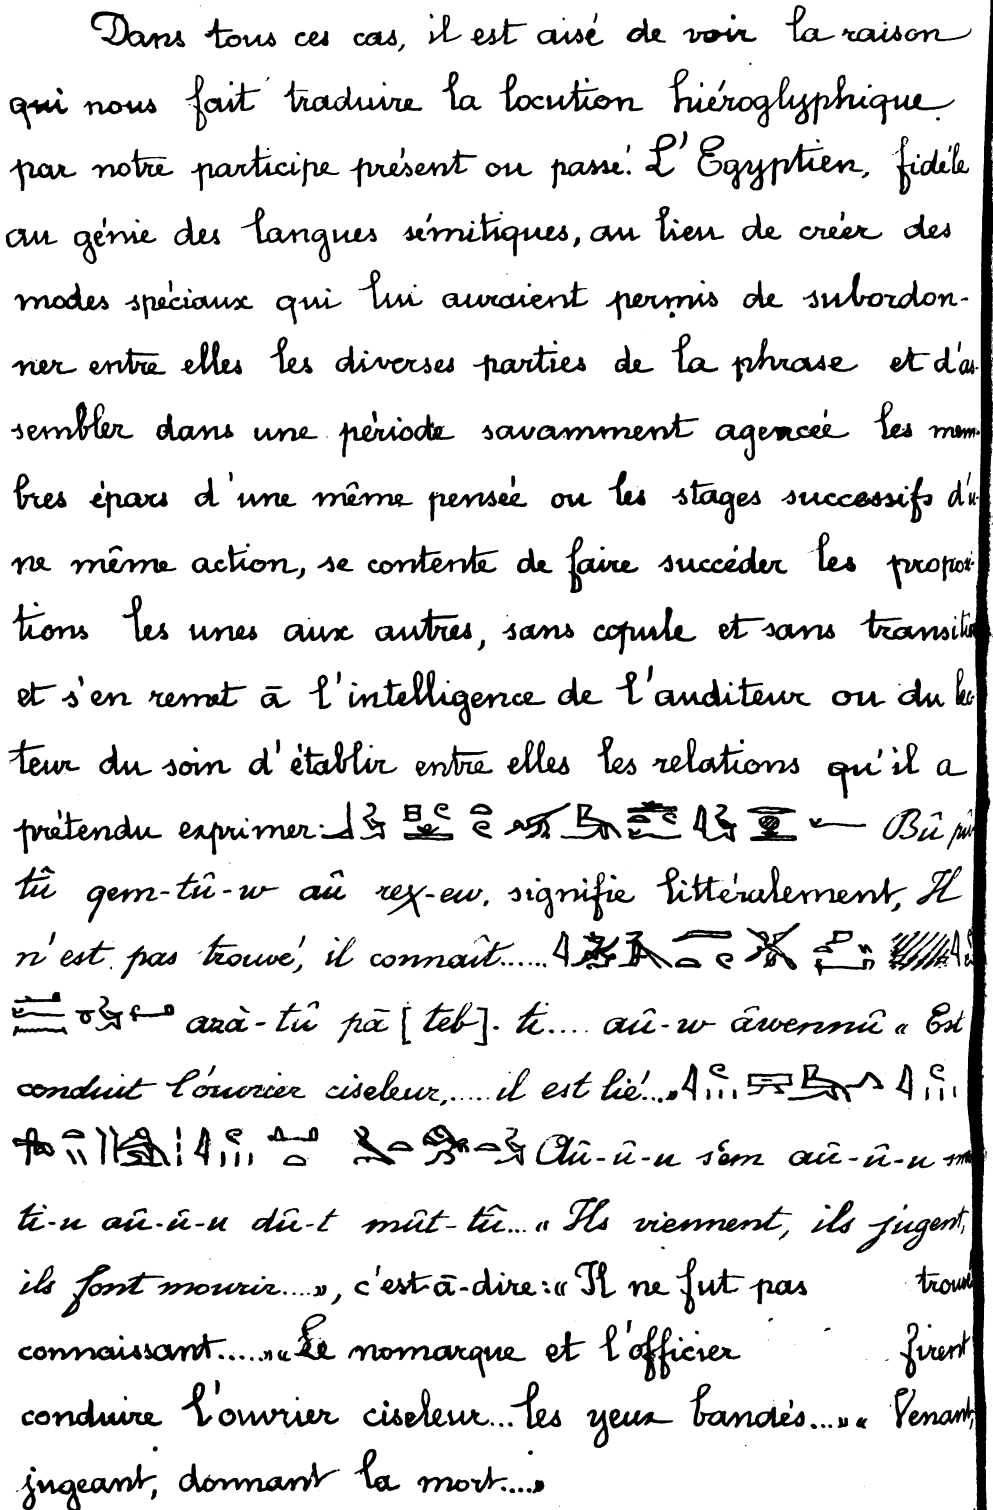 Dans tous ces cas, il est aisé de voir la raison
qui nous fait traduire la locution hiéroglyphique
par notre participe présent ou passé. L'Egyptien, fidéle
au génie des langues sémitiques, au lieu de créer des
modes spéciaux qui lui auraient permis de subordon-
ner entre elles les diverses parties de la phrase et d'as-
sembler dans une période savamment agencée les mem-
bres épars d'une même pensée ou les stages successifs d'u-
ne même action, se contente de faire succéder les propos-
tions les unes aux autres, sans copule et sans transition
et s'en remet ā l'intelligence de l'auditeur ou du lec-
teur du soin d'établir entre elles les relations qu'il a
prétendu exprimer: Bû pû
tû qem-tû-w aû rex-ew, signifie littéralement, Il
n'est pas trouvé, il connaît......
azà-tû pā [teb]. ti.... aû-w âwennû « Est
conduit l'ouvrier ciseleur,..... il est lié...»
Aû-û-u s'em aû-û-u
ti-u aû-û-u dû-t mût-tû... « Ils viennent, ils jugent,
ils font mourir....», c'est-ā-dire: « Il ne fut pas trouvé
connaissant.....» « Le nomarque et l'officier firent
conduire l'ouvrier ciseleur... les yeux bandés...» « Venant,
jugeant, donnant la mort....»